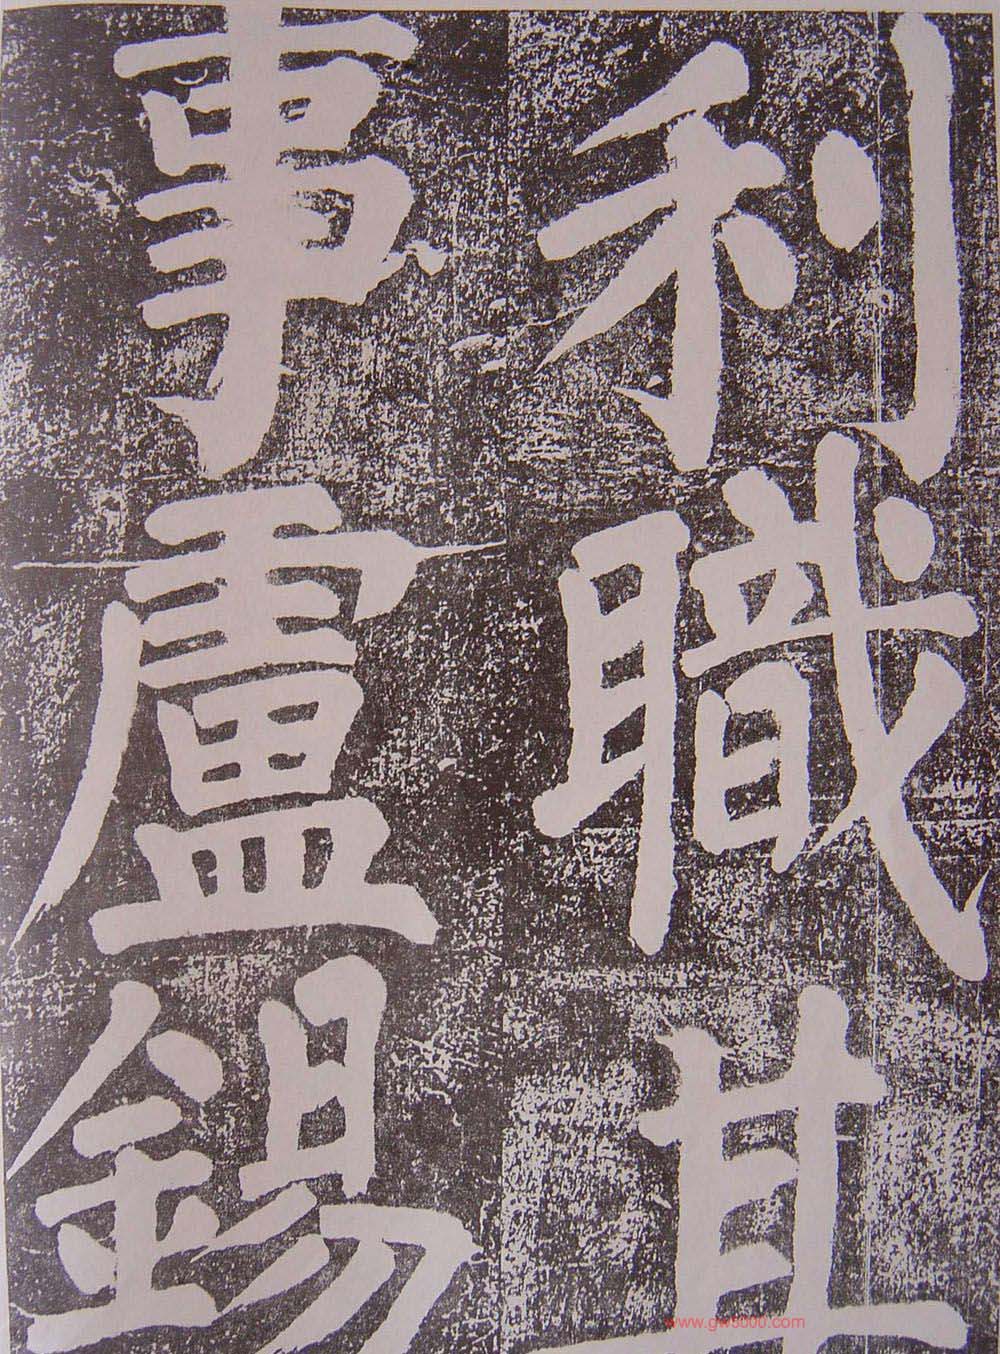 利職其
事盧錫
www.gw5000.com